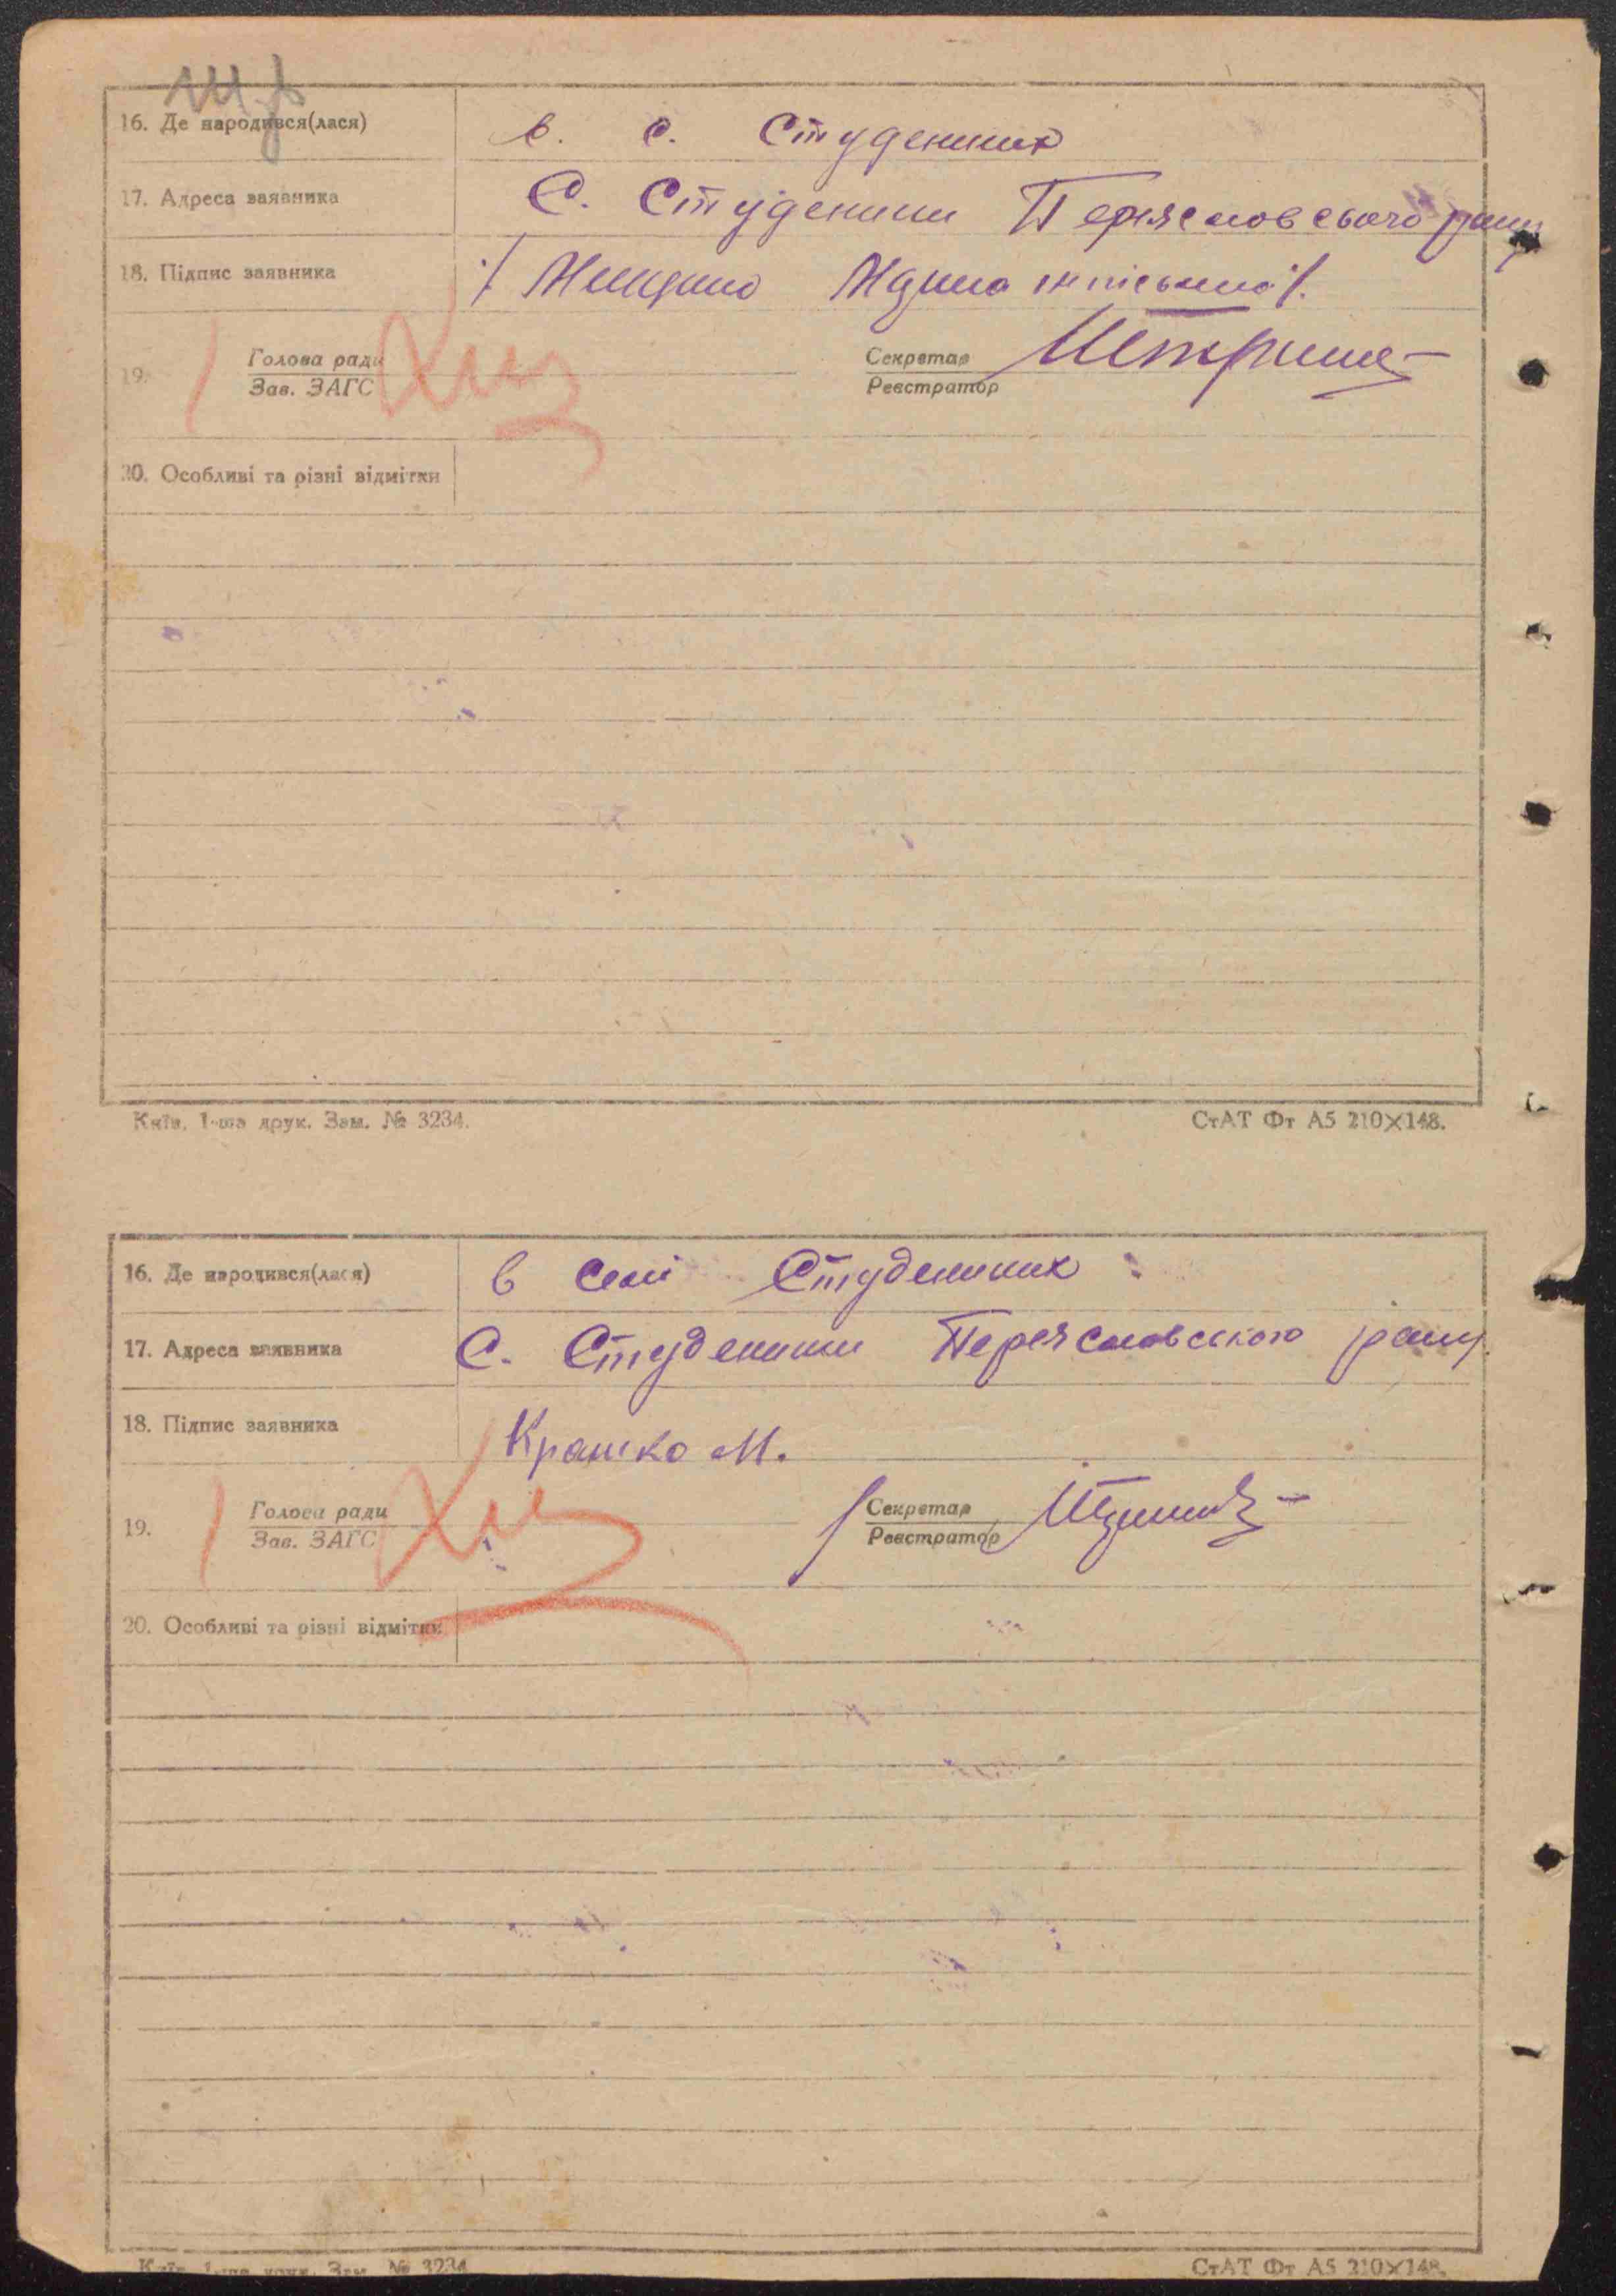 16. Де народився(лася) в. с. Студениках
17. Адреса заявника С. Студеники Переяславського рану
18. Підпис заявника
19. Голова ради Секретар
Зав. ЗАГС Реєстратор
20. Особливі та різні відмітки
Київ, 1-ша друк. Зам. № 3234. СтАТ Фт А5 210×148.
16. Де народився(лася) в селі Студениках
17. Адреса заявника С. Студеники Переяславського рану
18. Підпис заявника Крашко М.
19. Голова ради Секретар
Зав. ЗАГС Реєстратор
20. Особливі та різні відмітки
Київ, 1-ша друк. Зам. № 3234 СтАТ Фт А5 210×148.